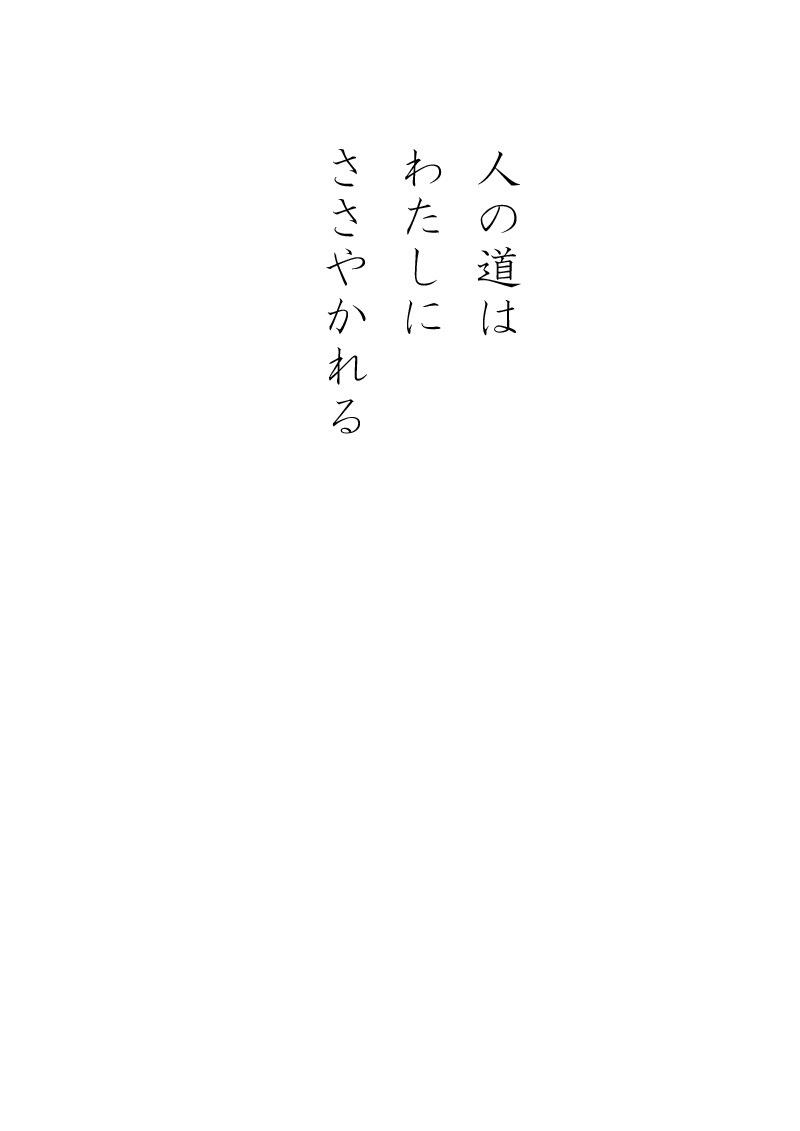 人の道は
わたしに
ささやかれる